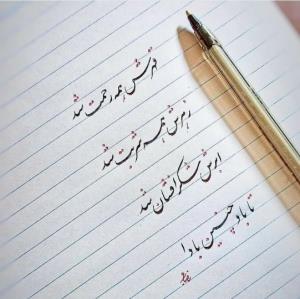 قهرش همه رحمت شد
زهرش همه شربت شد
ابرش شکر افشان شد
تا باد چنین بادا